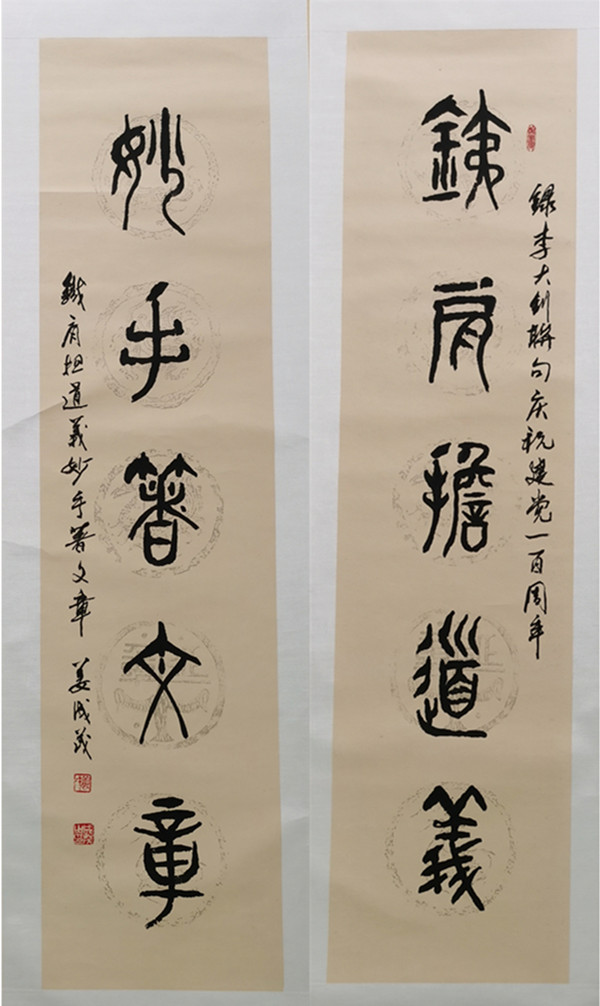 録李大钊聯句庆祝建党一百周年
銕肩擔道義
妙手箸文章
鐵肩担道義妙手著文章 姜成義